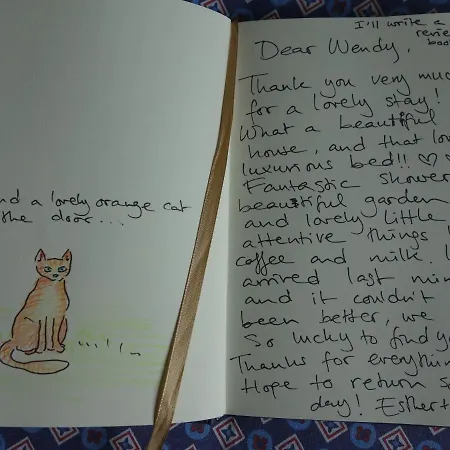 nd a lovely orange cat
the door....
I'll write a
revie
boo
Dear Wendy,
Thank you very muc
for a lovely stay!
What a beautiful
house, and that lo
luxurious bed!! ♡♡
Fantastic shower
beautiful garden
and lovely little
attentive things
coffee and milk.
arrived last min
and it couldn't
been better, we
So lucky to find yo
Thanks for everythin
Hope to return s
day! Esther +